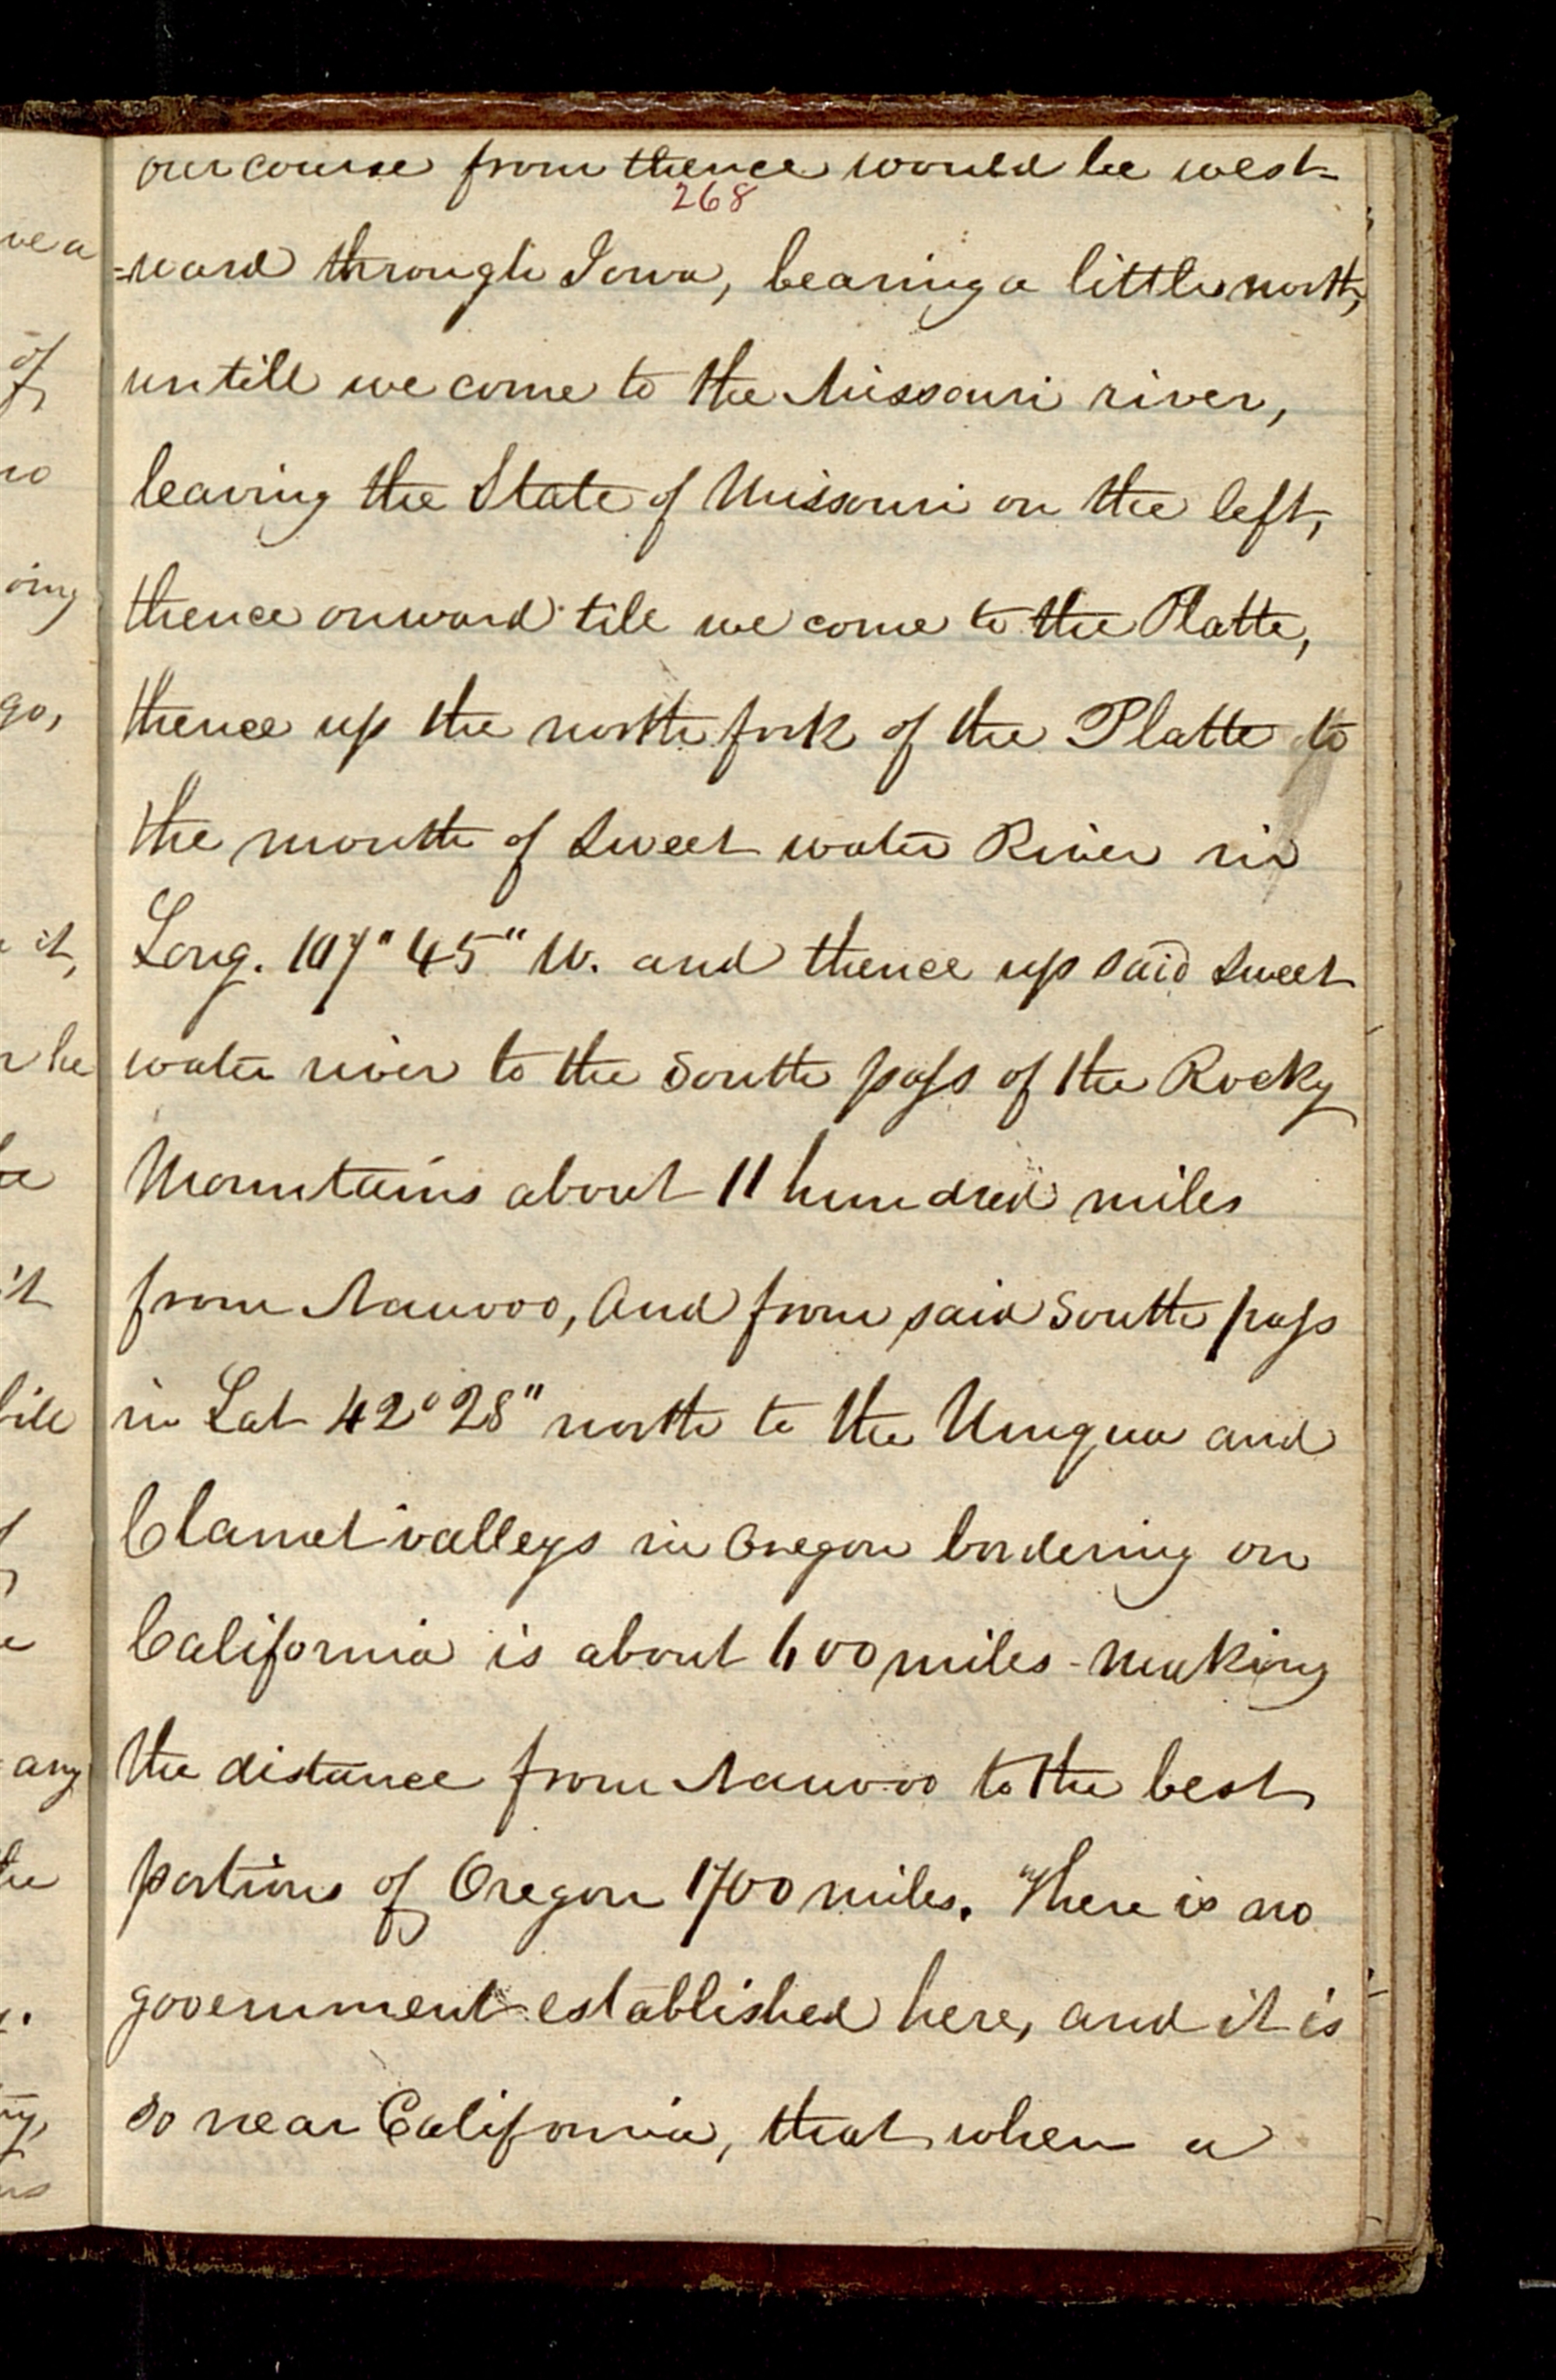 our course from thence would be west=
268
=ward through Iowa, bearing a little north,
untill we come to the Missouri river,
leaving the State of Missouri on the left,
thence onward till we come to the Platte,
thence up the north fork of the Platte to
the mouth of Sweet water River in
Long. 107" 45" W. and thence up said Sweet
water river to the South pass of the Rocky
Mountains about 11 hundred miles
from Nauvoo, And from said South pass
in Lat 42° 28" north to the Umqua and
Clamet valleys in Oregon bordering on
California is about 600 miles - making
the distance from Nauvoo to the best
portions of Oregon 1700 miles. There is no
government established here, and it is
so near California, that when a